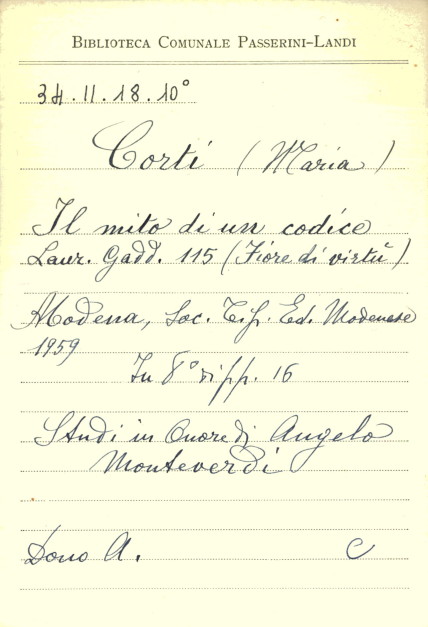 BIBLIOTECA COMUNALE PASSERINI-LANDI
34.II.18.10°
Corti (Maria)
Il mito di un codice
Laur. Gadd. 115 (Fiore di virtù)
Modena, Soc. Tip. Ed. Modenese
1959
In 8° di pp. 16
Studi in Onore di Angelo
Monteverdi
Dono A. C